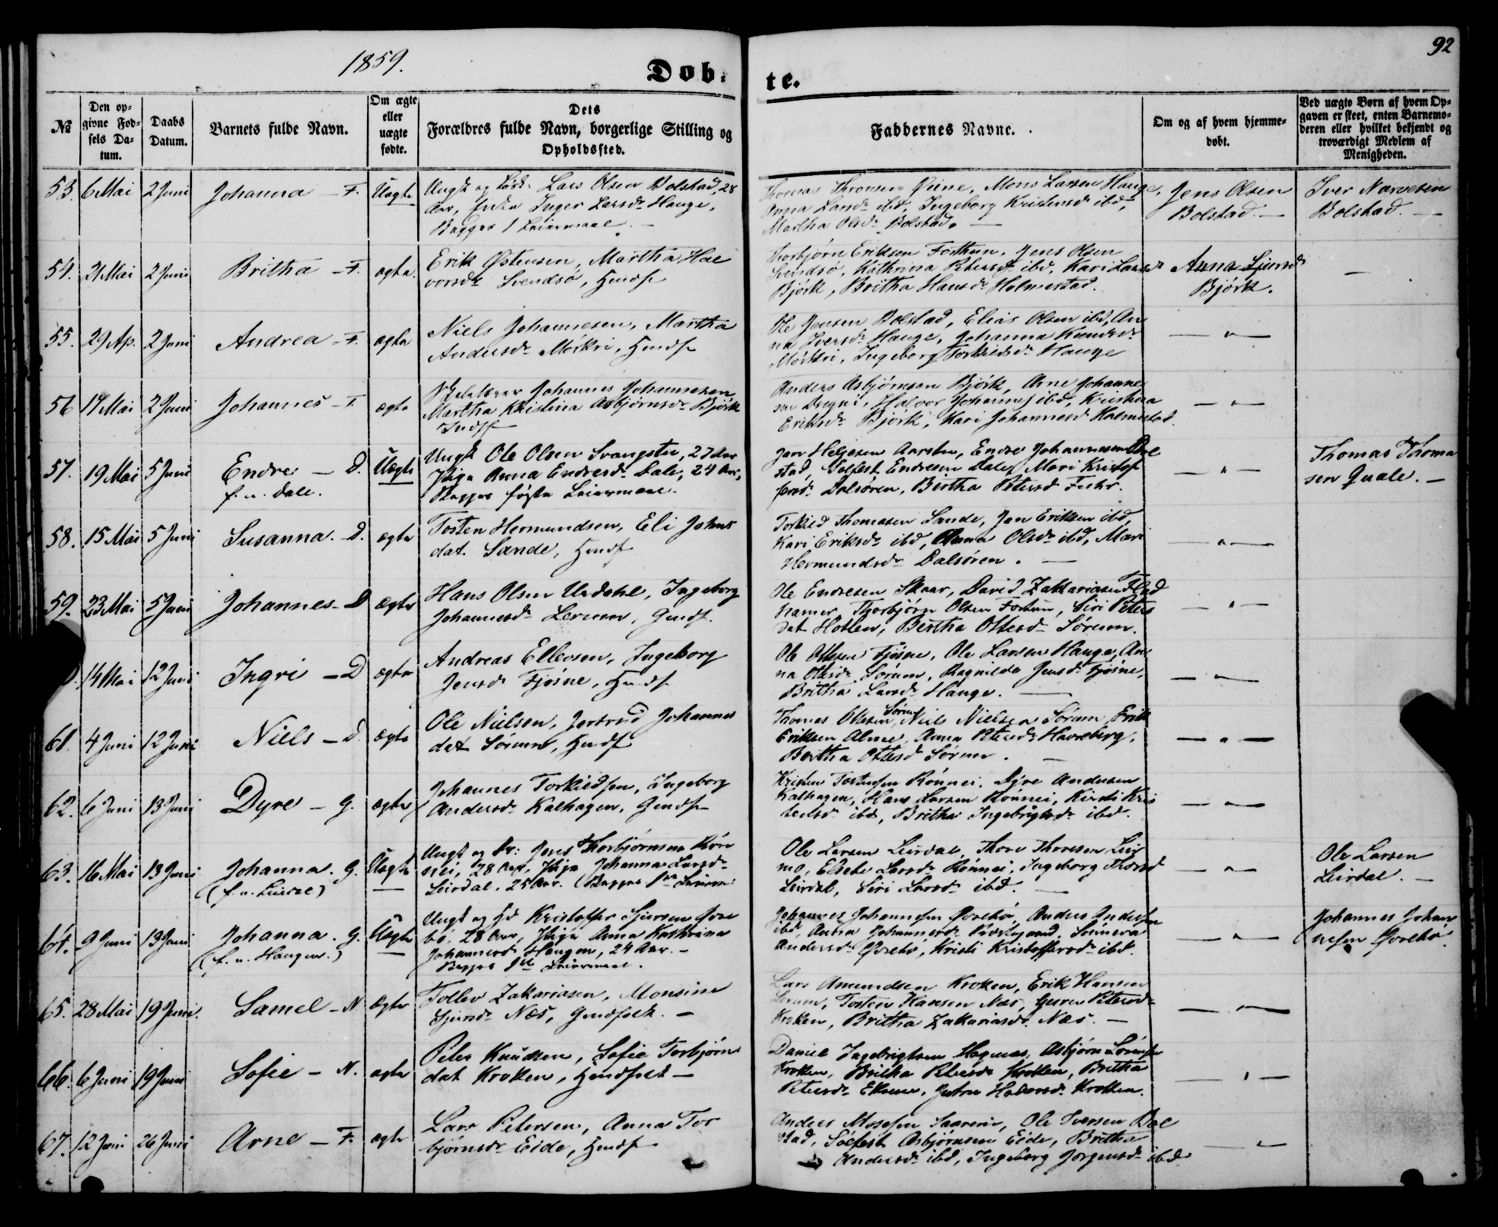 1859.
Døb-
te.
92
№
Den op-
givne Fød-
sels Da-
tum.
Daabs
Datum.
Barnets fulde Navn.
Om ægte
eller
uægte
fødte.
Dets
Forældres fulde Navn, borgerlige Stilling og
Opholdssted.
Faddernes Navne.
Om og af hvem hjemme-
døbt.
Ved uægte Børn af hvem Op-
gaven er skeet, enten Barnemo-
deren eller hvilket bekjendt og
troværdigt Medlem af
Menigheden.
53. 6 Mai 2 Juni Johanna - F. Uægte
Lars Olsen Bolstad, 28
Aar, Inger Larsd. Hauge,
Begges 1 Leiermaal. -
Mons Larsen Hauge,
Anna Larsd. ibd, Ingeborg ibd,
Martha Olsd. Bolstad. -
Jens Olsen
Bolstad. -
Iver
Bolstad. -
54. 21 Mai 2 Juni Britha - F. ægte
Erik Østensen, Martha Hal
vorsd. Svendsø, Huusf
Torbjørn Eriksen Fortun, Jens Olsen
Svendsø, Kathrina Petersd. ibd, Kari Larsd
Bjørk, Britha Hansd. Holmestad.
Anna Sjursd
Bjørk.
55. 29 Ap. 2 Juni Andrea - F. ægte
Niels Johannesen, Martha
Andersd. Mørkri, Huusf
Ole Jensen Bolstad, Elias Olsen ibd, An
na Iversd. Hauge, Johanna Knudsd.
Mørkri, Ingeborg Torkildsd. Hauge
56 14 Mai 2 Juni Johannes - F. ægte
Johannes Johannesen,
Martha Kristina Asbjørnsd. Bjørk
Anders Asbjørnsen Bjørk, Arne Johanne
sen Dregni, Halvor Johannes ibd, Kristina
Eriksd. Bjørk, Kari Johannesd. Holmestad.
57. 19 Mai 5 Juni Endre - D. Uægte
f. u. Dale.
Ungk. Ole Olsen Svangstu, 27 Aar
Pige Anna Endresd. Dale, 24 Aar,
Begges første Leiermaal.
Jan Helgesen Aarsten, Endre Johannesen Bol
stad, Solfest Endresen Dale, Mari Kristof
fersd. Dalsøren, Britha Petersd.
Thomas Thoma
sen Quale. -
58. 15 Mai 5 Juni Susanna. D. ægte
Tosten Hermundsen, Eli Johns
dat. Sande, Huusf
Torkild Thomasen Sande, Jan Eriksen ibd
Kari Eriksd. ibd, Anna Olsd. ibd, Mari
Hermundsd. Dalsøren. -
59. 23 Mai 5 Juni Johannes - D ægte
Hans Olsen Urdahl, Ingeborg
Johannesd. Lerum, Huusf.
Ole Endresen Skaar, David Zakariasen Flad
hamer, Torbjørn Olsen Fortun, Siri Peters
dat Hollen, Britha Ottesd. Sørum.
14 Mai 12 Juni Ingri - D ægte
Andreas Ellevsen, Ingeborg
Jensd. Fjøsne, Huusf
Ole Ottesen Fjøsne, Ole Larsen Hauge, An
na Ottesd. Sørum, Ragnilde Jensd. Fjøsne,
Britha Larsd. Hauge. -
61. 4 Juni 12 Juni Niels - D. ægte
Ole Nielsen, Jertrud Johannes
dat Sørum, Huusf
Thomas Ottesen Sørum, Niels Nielsen Sørum, Erik
Eriksen Alme, Anna Petersd. Haveberg,
Britha Ottesd Sørum. -
62. 6 Juni 13 Juni Dyre - G. ægte
Johannes Torkildsen, Ingeborg
Andersd. Kalhagen, Huusf
Kristen Tostensen Rønnei, Dyre Andersen
Kalhagen, Hans Larsen Rønnei, Kirsti Kris
tensd. ibd, Britha Ingebrigtsd. ibd.
63. 16 Mai 13 Juni Johanna. G. Uægte
(f. u. Leirdal)
Jens Thorbjørnsen Røn
nei, 28 Aar, Pige Johanna Larsd.
Leirdal, 25 Aar. (Begges 1ste Leierm.
Ole Larsen Leirdal, Thore
Larsd. Rønnei, Ingeborg
Leirdal, Siri Larsd. ibd. -
Ole Larsen
Leirdal. -
64. 9 Juni 13 Juni Johanna. G. Uægte
(f. u. Haugen.)
Kristoffer Sjursen Øvre
bø, 28 Aar, Pige Anna Kathrina
Johannesd. Haugen, 24 Aar. -
Begges 1ste Leiermaal.
Johannes Johannesen Øvrebø, Anders Andersen
ibd, Johannesd. Sunneva
Andersd. Øvrebø, Kristi Kristoffersd. ibd.
Johannes Johan
nesen Øvrebø.
65. 28 Mai 19 Juni. Samel - N ægte
Tollev Zakariasen, Monsine
Sjursd. Næs, Huusfolk. -
Lars Amundsen Kroken, Erik Hansen
Lerum, Tosten Hansen Næs, Guren Petersd.
Kroken, Britha Zakariasd. Næs. -
66. 6 Juni 19 Juni Sofie - N. ægte
Peder Knudsen, Sofie Torbjørns
dat Kroken, Huusfolk -
Daniel Ingebrigtsen Asbjørn
Kroken, Britha Petersd. Kroken, Britha
Petersd. Halvorsd. Kroken.
67. 12 Juni 26 Juni Arne - F. ægte
Lars Petersen, Anna Tor
bjørnsd. Eide, Huusf
Anders Mosesen Ole Iversen Bol
stad, Solfest Asbjørnsen Eide, Britha
Andersd. ibd, Ingeborg Jørgensd. ibd